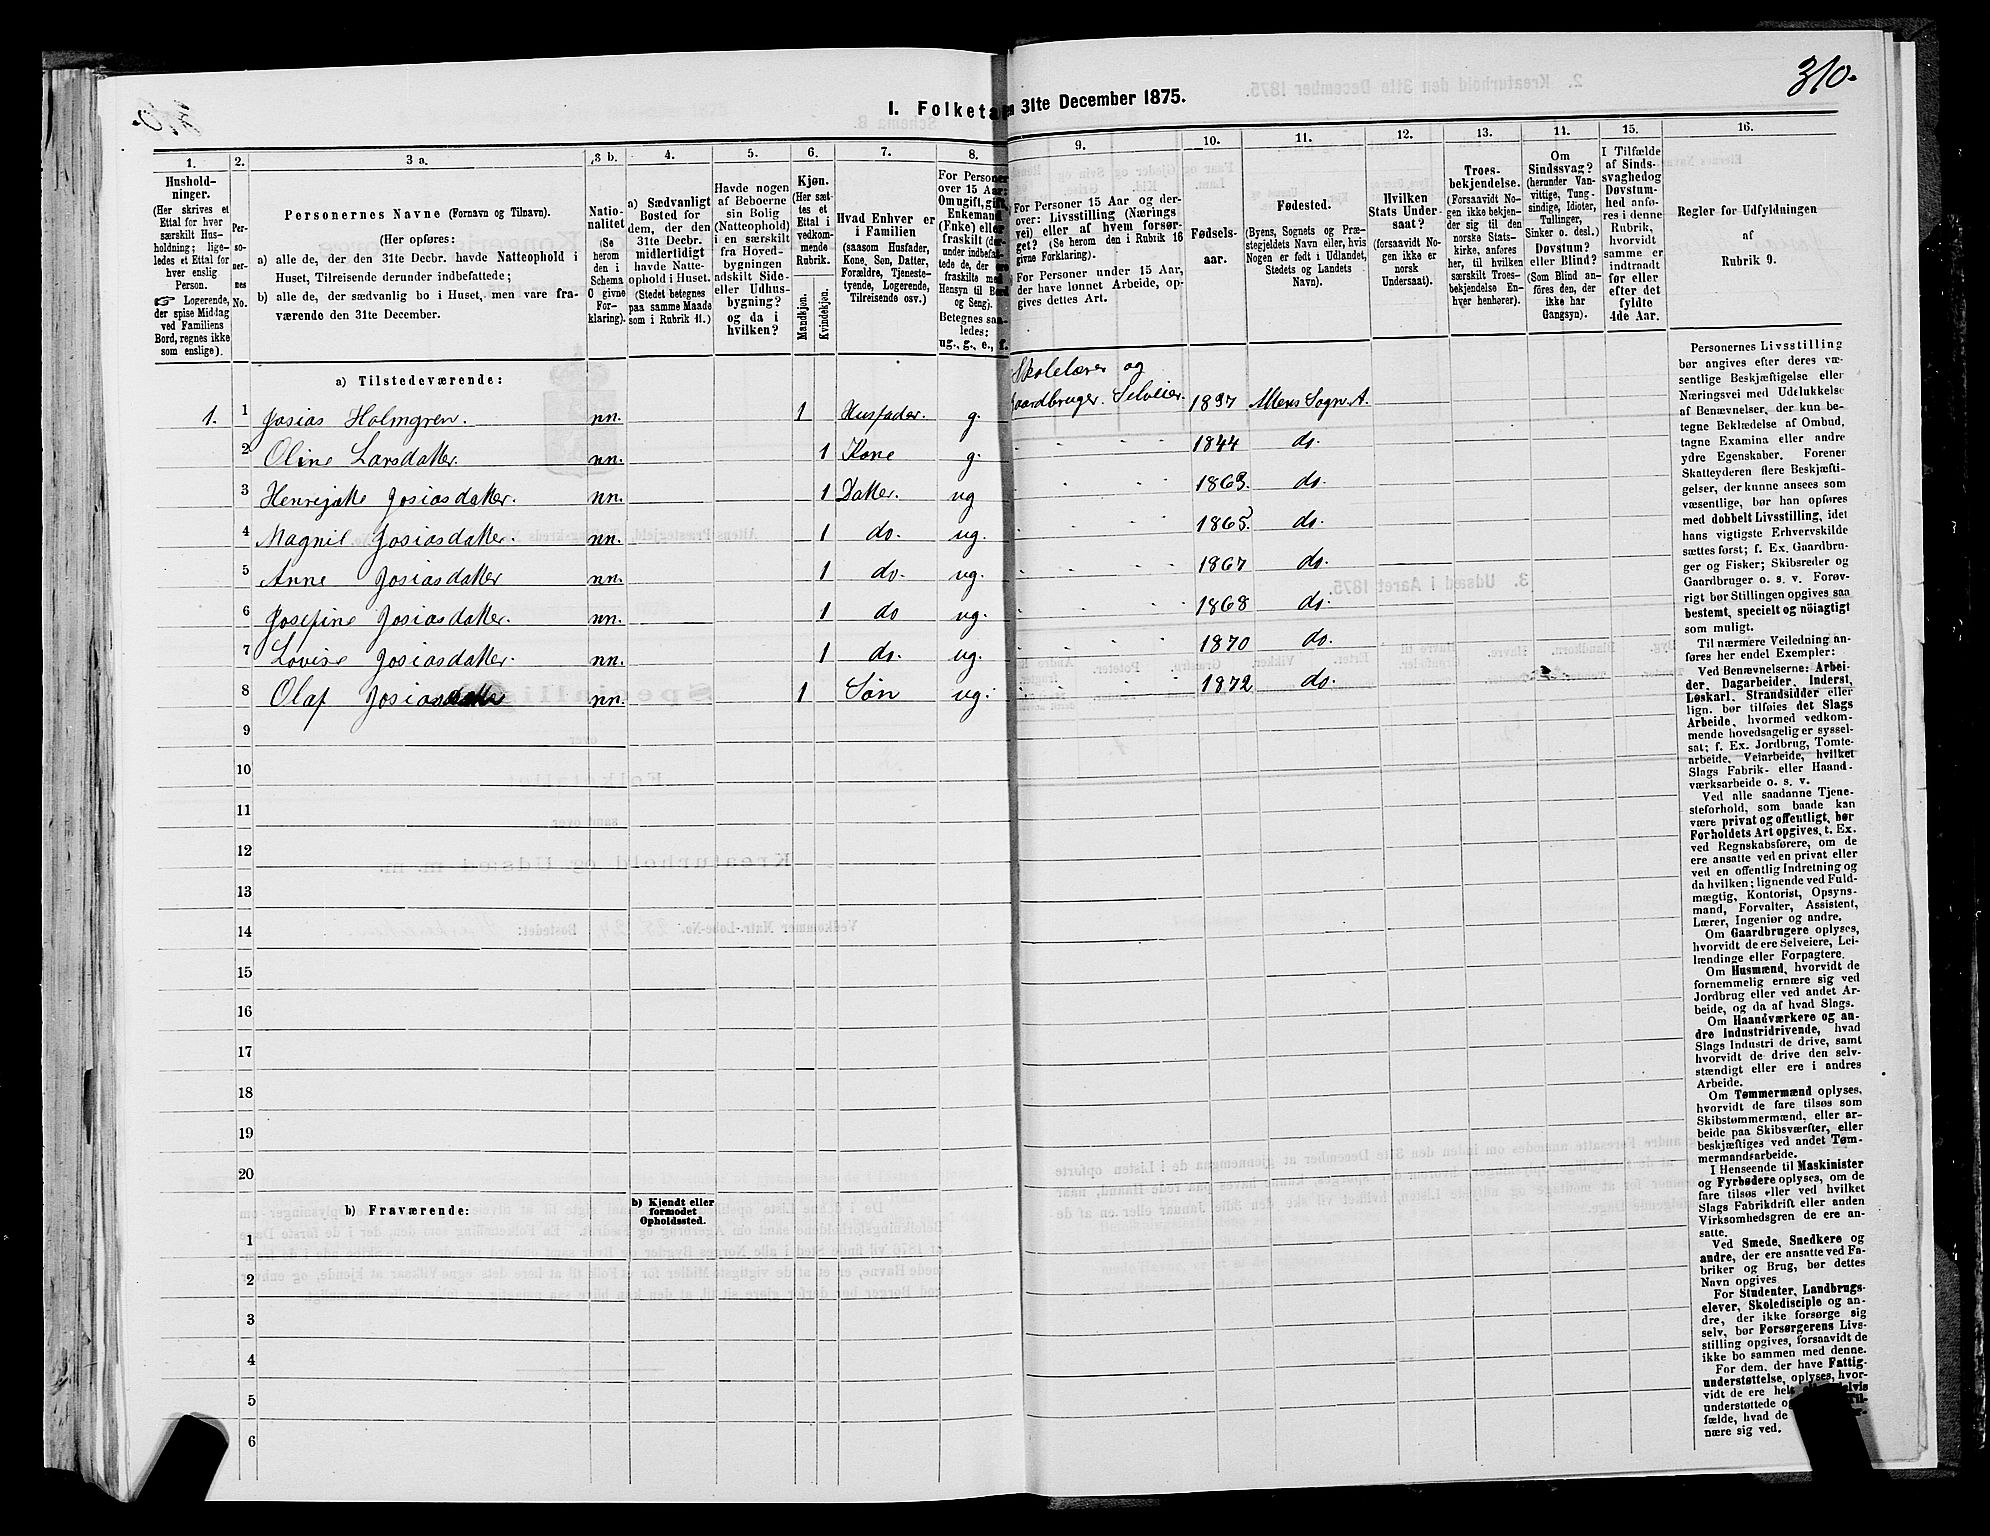 310.
I. Folketa 31te December 1875.
1. 2. 3 a. 3 b. 4. 5. 6. 7. 8. 9. 10. 11. 12. 13. 14. 15. 16.
Hushold-
ninger.
(Her skrives et
Ettal for hver
særskilt Hus-
holdning; lige-
ledes et Ettal for
hver enslig
Person.
☞ Logerende,
der spise Middag
ved Familiens
Bord, regnes ikke
som enslige).
Per-
so-
ner-
nes
No.
Personernes Navne (Fornavn og Tilnavn).
(Her opføres:
a) alle de, der den 31te Decbr. havde Natteophold i
Huset, Tilreisende derunder indbefattede;
b) alle de, der sædvanlig bo i Huset, men vare fra-
værende den 31te December.
Natio-
nalitet
(Se
herom
den i
Schema
O givne
For-
klaring).
a) Sædvanligt
Bosted for
dem, der den
31te Decbr.
midlertidigt
havde Natte-
ophold i Huset.
(Stedet betegnes
paa samme Maade
som i Rubrik 11.)
Havde nogen
af Beboerne
sin Bolig
(Natteophold)
i en særskilt
fra Hoved-
bygningen
adskilt Side-
eller Udhus-
bygning?
og da i
hvilken?
Kjøn.
(Her sæt-
tes et
Ettal i
vedkom-
mende
Rubrik.
Mandkjøn.
Kvindekjøn.
Hvad Enhver er
i Familien
(saasom Husfader,
Kone, Søn, Datter,
Forældre, Tjeneste-
tyende, Logerende,
Tilreisende osv.)
For Personer
over 15 Aar:
Om ugift, gift,
Enkemand
(Enke) eller
fraskilt (der-
under indbefat-
tede de, der ere
fraskilte med
Hensyn til Bord
og Seng).
Betegnes saa-
ledes:
ug., g., e., f.
For Personer 15 Aar og der-
over: Livsstilling (Nærings
vei) eller af hvem forsør-
get? (Se herom den i Rubrik 16
givne Forklaring).
For Personer under 15 Aar,
der have lønnet Arbeide, op-
gives dettes Art.
Fødsels-
aar.
Fødested.
(Byens, Sognets og Præ-
stegjeldets Navn eller, hvis
Nogen er født i Udlandet,
Stedets og Landets
Navn).
Hvilken
Stats Under-
saat?
(forsaavidt No-
gen ikke er
norsk
Undersaat).
Troes-
bekjendelse.
(Forsaavidt No-
gen ikke bekjen-
der sig til den
norske Stats-
kirke, anføres
her, til hvilken
særskilt Troes-
bekjendelse En-
hver henhører).
Om
Sindssvag?
(herunder Van-
vittige, Tung-
sindige, Idioter,
Tullinger,
Sinker o. desl.)
Døvstum?
eller Blind?
(Som Blind an-
føres den, der
ikke har
Gangsyn).
I Tilfælde
af Sinds-
svaghed og
Døvstum-
hed anfø-
res i denne
Rubrik,
hvorvidt
samme er
indtraadt
før eller
efter det
fyldte
4de Aar.
Regler for Udfyldningen
af
Rubrik 9.
a) Tilstedeværende:
Skolelærer og
1. 1 Josias Holmgren. nn. 1 Husfader. g. Gaardbruger. Selveier. 1837 Altens Sogn. A.
2 Oline Larsdatter. nn. 1 Kone g. 1844 do.
3 Henrijette Josiasdatter. nn. 1 Datter. ug 1863. do.
4 Magnil Josiasdatter. nn. 1 do. ug. 1865. do.
5 Anne Josiasdatter nn. 1 do. ug. 1867 do.
6 Josefine Josiasdatter. nn. 1 do ug. 1868 do.
7 Lovise Josiasdatter. nn. 1 do. ug. 1870 do.
8 Olaf Josias nn. 1 Søn ug. 1872 do.
9
10
11
12
13
14
15
16
17
18
19
20
b) Fraværende:
b) Kjendt eller
formodet
Opholdssted.
1
2
3
4
5
6
Personernes Livsstilling
bør angives efter deres væ-
sentlige Beskjæftigelse eller
Næringsvei med Udelukkelse
af Benævnelser, der kun be-
tegne Beklædelse af Ombud,
tagne Examina eller andre
ydre Egenskaber. Forener
Skatteyderen flere Beskjæfti-
gelser, der kunne ansees som
væsentlige, bør han opføres
med dobbelt Livsstilling, idet
hans vigtigste Erhvervskilde
sættes først; f. Ex. Gaardbru-
ger og Fisker; Skibsreder og
Gaardbruger o. s. v. Forøv-
rigt bør Stillingen opgives saa
bestemt, specielt og nöiagtigt
som muligt.
Til nærmere Veiledning an-
føres her endel Exempler:
Ved Benævnelserne: Arbei-
der, Dagarbeider, Inderst,
Løskarl, Strandsidder eller
lign. bør tilføies det Slags
Arbeide, hvormed vedkom-
mende hovedsagelig er syssel-
sat; f. Ex. Jordbrug, Tomte-
arbeide, Veiarbeide, hvilket
Slags Fabrik- eller Haand-
værksarbeide o. s. v.
Ved alle saadanne Tjene-
steforhold, som baade kan
være privat og offentligt, bør
Forholdets Art opgives, t. Ex.
ved Regnskabsførere, om de
ere ansatte ved en privat eller
ved en offentlig Indretning og
da hvilken; lignende ved Fuld-
mægtig, Kontorist, Opsyns-
mand, Forvalter, Assistent,
Lærer, Ingeniør og andre.
Om Gaardbrugere oplyses,
hvorvidt de ere Selveiere, Lei-
lændinge eller Forpagtere.
Om Husmænd, hvorvidt de
fornemmelig ernære sig ved
Jordbrug eller ved andet Ar-
beide, og da af hvad Slags.
Om Haandværkere og an-
dre Industridrivende, hvad
Slags Industri de drive, samt
hvorvidt de drive den selv-
stændigt eller ere i andres
Arbeide.
Om Tømmermænd oplyses,
hvorvidt de fare tilsøs som
Skibstømmermænd, eller ar-
beide paa Skibsværfter, eller
beskjæftiges ved andet Tøm-
mermandsarbeide.
I Henseende til Maskinister
og Fyrbødere oplyses, om de
fare tilsøs eller ved hvilket
Slags Fabrikdrift eller anden
Virksomhedsgren de ere an-
satte.
Ved Smede, Snedkere og
andre, der ere ansatte ved Fa-
briker og Brug, bør dettes
Navn opgives.
For Studenter, Landbrugs-
elever, Skoledisciple og an-
dre, der ikke forsørge sig
selv, bør Forsørgerens Livs-
stilling opgives, forsaavidt de
ikke bo sammen med denne.
For dem, der have Fattig-
understøttelse, oplyses, hvor-
vidt de ere hel
understøttede o
fælde, hvad de
nære sig ved.